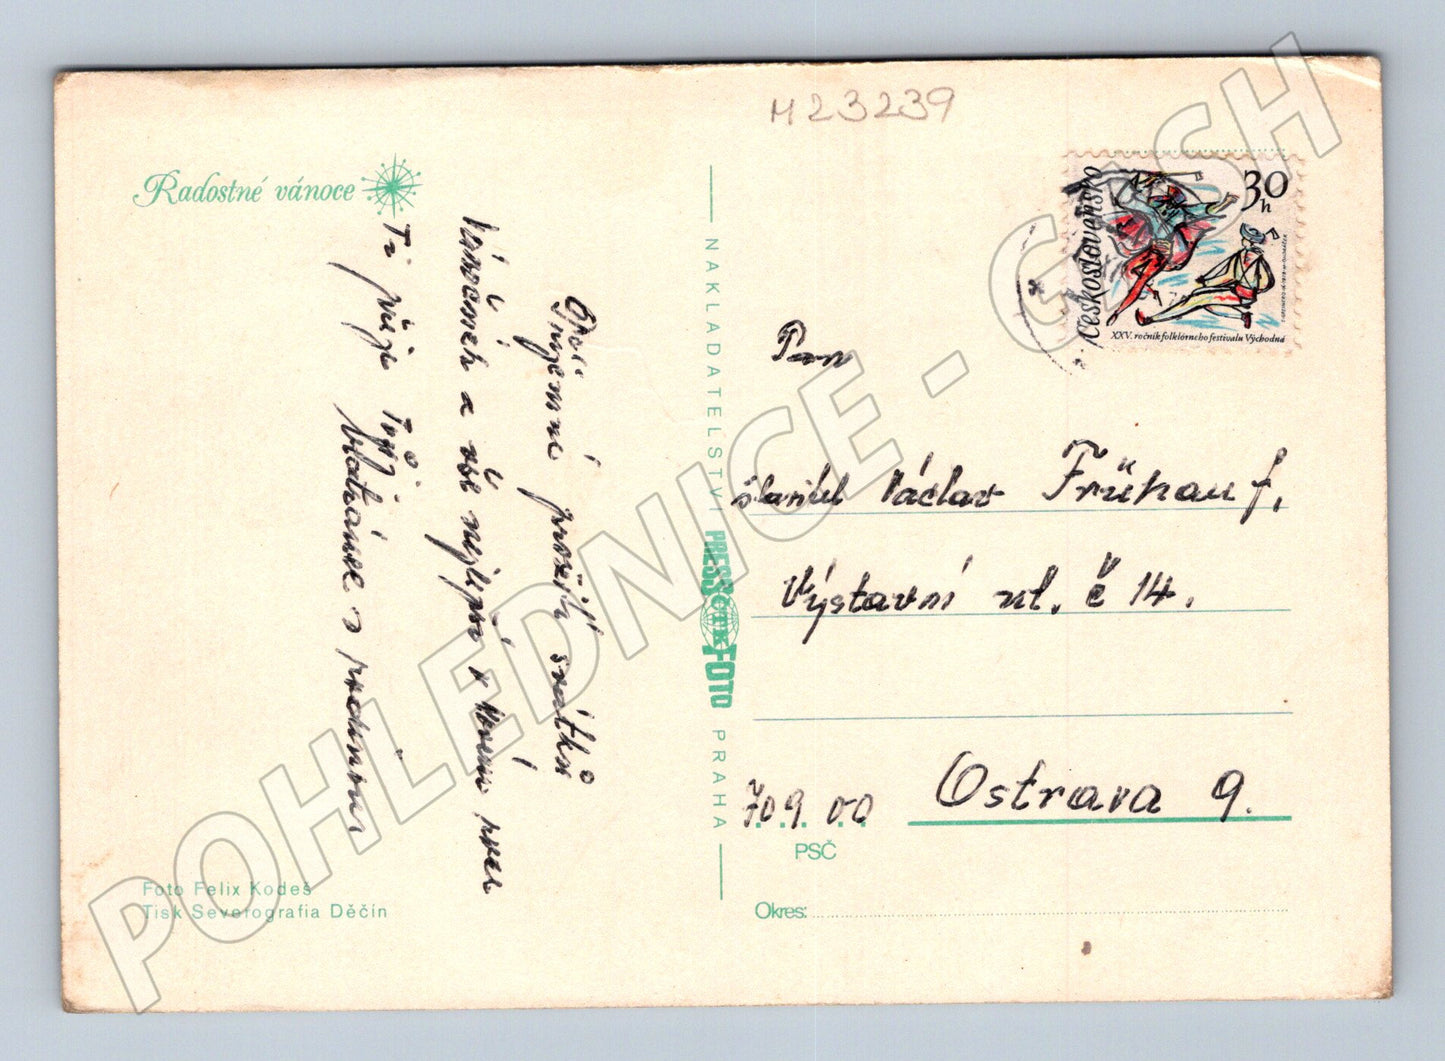 M23239
Radostné vánoce
Československo
30
h
XXV. ročník folklórneho festivalu Východná
příjemné prožití svátků
Vánočních a vše nejlepší v Novém roce
Ti přeje Tvůj
bratránek s rodinou
NAKLADATELSTVÍ
PRESSFOTO
PRAHA
Pan
Václav Frühauf,
Výstavní ul. č 14.
709 00
Ostrava 9.
PSČ
Okres:
Foto Felix Kodeš
Tisk Severografia Děčín
POHLEDNICE - GASH